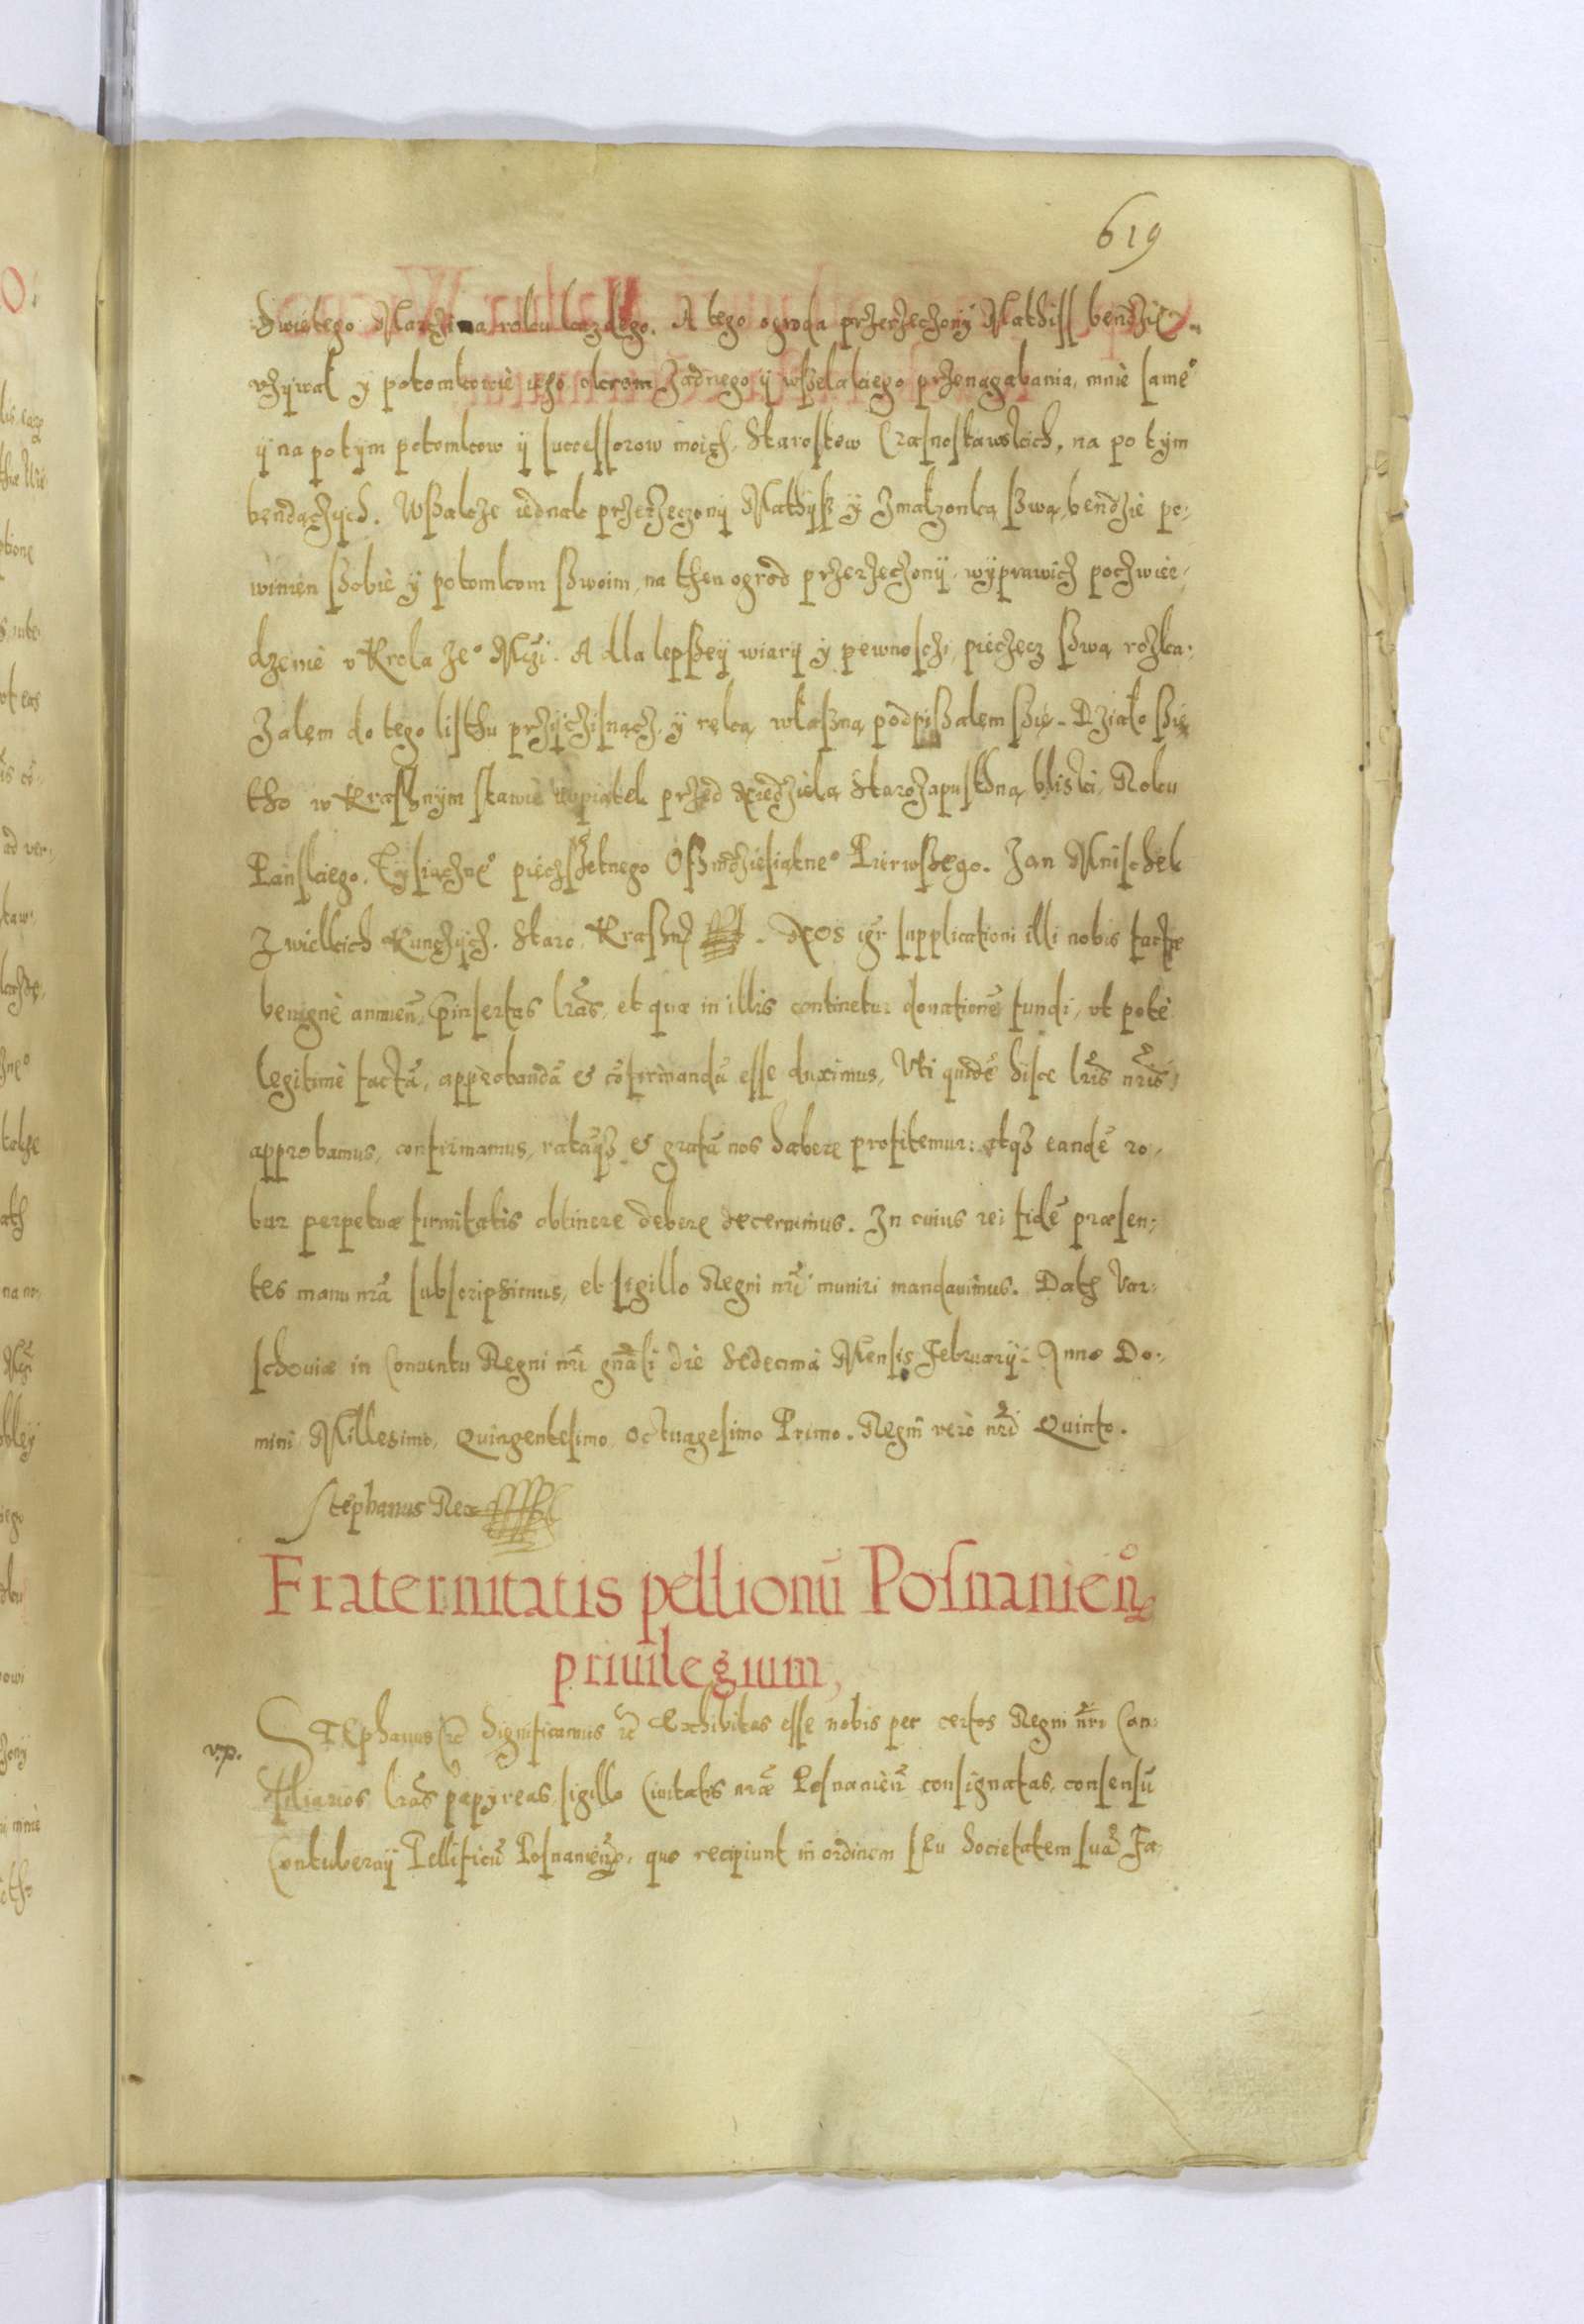 619
Swiętego Marcina roku każdego. A tego ogroda przerzeczony Mathiss bendzie
vżywał y potomkowie iego okrom żadnego y wszelakiego przenagabania, mnie sameº
ÿ na potÿm potomkow ÿ successorow moich, Starostow Crasnostawskich, na po tÿm
bendączÿch. Wszakże iednak przerzeczonÿ Mathÿss ÿ z małzonką szwą, bendzie po:
winien szobie ÿ potomkom szwoim, na then ogrod przerzeczonÿ, wÿprawicz poczwier,
dzenie v Krola Jeº Mći. A dla lepszeÿ wiarÿ ÿ pewnosczi, pieczecz szwą rozka:
załem do tego listhu przÿczisnącz, ÿ ręką własną podpiszałem szię. Działo szię
tho w Krasznÿm stawie w piątek przed Niedzielą Starozapustną bliski, Roku
Pańskiego, Tÿsiącznº pięczsetnego Oszmdziesiątneº Pierwszego. Jan Mnischek
z wielkich Kunczÿcz. Staro. Kraszn. NOS igr supplicationi illi nobis factæ
benignè annuen̄, p̄insertas lr̄as, et quæ in illis continetur donationē fundi, vt potè
legitimè factā, approbandā & cōfirmandā esse duximus, Vti quidē hisce lr̄is nr̄is
approbamus, confirmamus, ratāqȝ & gratā nos habere profitemur: atqȝ eandē ro,
bur perpetuæ firmitatis obtinere debere decernimus. In cuius rei fidē præsen:
tes manu nr̄a subscripsimus, et sigillo Regni nr̄i muniri mandauimus. Dat̄ Var:
schouiæ in Conuentu Regni nr̄i gn̄ali die Sedecima Mensis Februarÿ: Anno Do:
mini Millesimo, Quingentesimo Octuagesimo Primo. Regni verò nr̄i Quinto.
Stephanus Rex
Fraternitatis pellionū Posnanien̄
priuilegium,
v.p.
STEphanus &c Significamus &c Exhibitas esse nobis per certos Regni nr̄i Con:
siliarios lr̄as papÿreas, sigillo Ciuitatis nr̄æ Posnanien̄ consignatas, consensū
Contubernÿ Pellificū Posnanien̄, quo recipiunt in ordinem seu Societatem suā Fa,